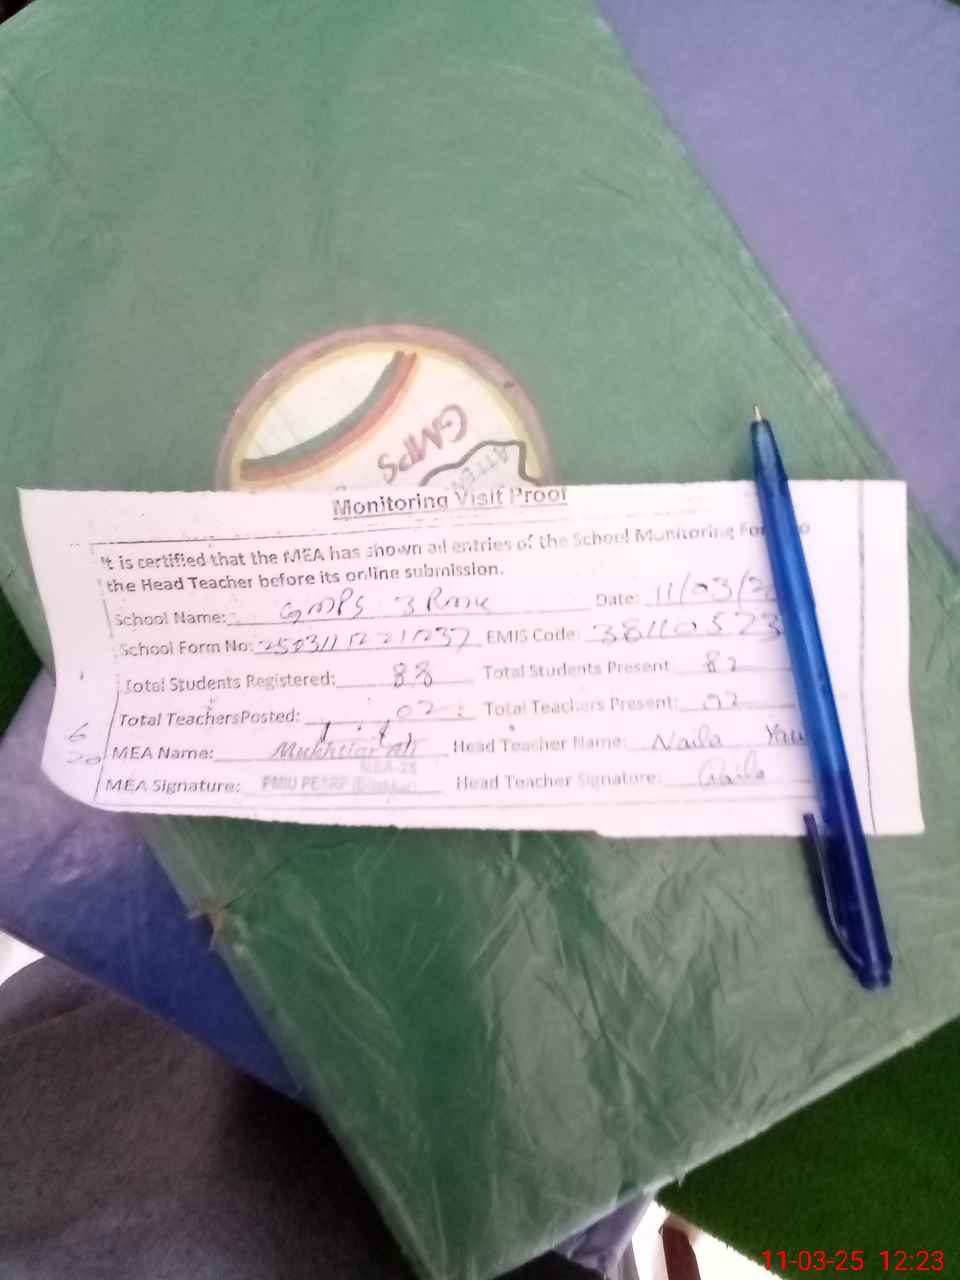 GMPS
ATTEN
Monitoring Visit Proof
It is certified that the MEA has shown all entries of the School Monitoring Fo
the Head Teacher before its online submission.
School Name: GMPS 3 Date: 11/03/2
School Form No: EMIS Code: 38110523
Total Students Registered: 88 Total Students Present: 82
Total TeachersPosted: 02 Total Teachers Present: 02
MEA Name: Mukhtiar Ali Head Teacher Name: Naila
MEA-28
MEA Signature: PMIU PESRP Head Teacher Signature: Naila
6
20
11-03-25 12:23